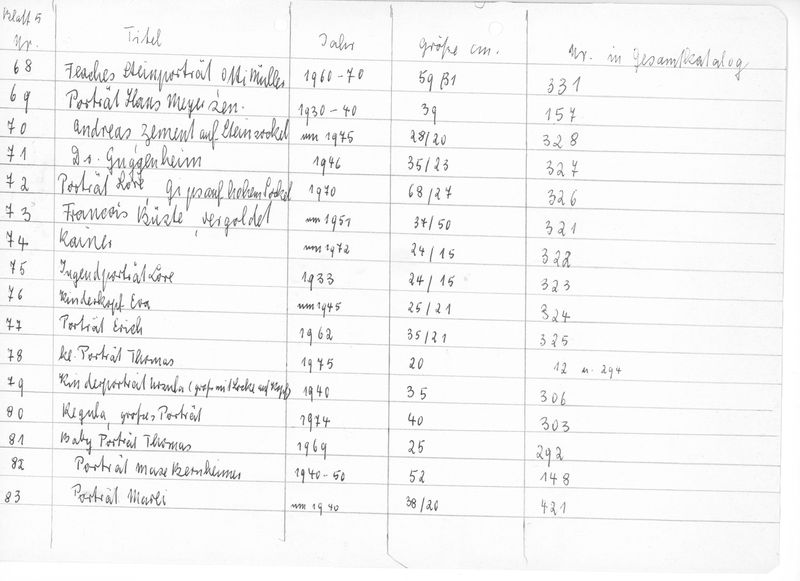 Blatt 5
Nr. Titel Jahr Größe cm. Nr. in Gesamtkatalog
68 Steinporträt Otti Müller 1960-70 59 331
69 Porträt Hans Meyer sen. 1930-40 39 157
70 Andreas Zement auf Steinsockel um 1975 28/20 328
71 Dr. Guggenheim 1946 35/23 327
72 Porträt Lore, Gips auf hohem Sockel 1970 68/27 326
73 Francois Büste, vergoldet um 1951 37/50 321
74 Rainer um 1972 24/15 322
75 Jugendporträt Lore 1933 24/15 323
76 Kinderkopf Eva um 1945 25/21 324
77 Porträt Erich 1962 35/21 325
78 kl. Porträt Thomas 1975 20 12 u. 294
79 Kinderporträt Ursula (groß mit Locke auf Kopf) 1940 35 306
80 Regula, großes Porträt 1974 40 303
81 Baby Porträt Thomas 1969 25 292
82 Porträt Max Bernheimer 1940-50 52 148
83 Porträt Marei um 1940 38/20 421